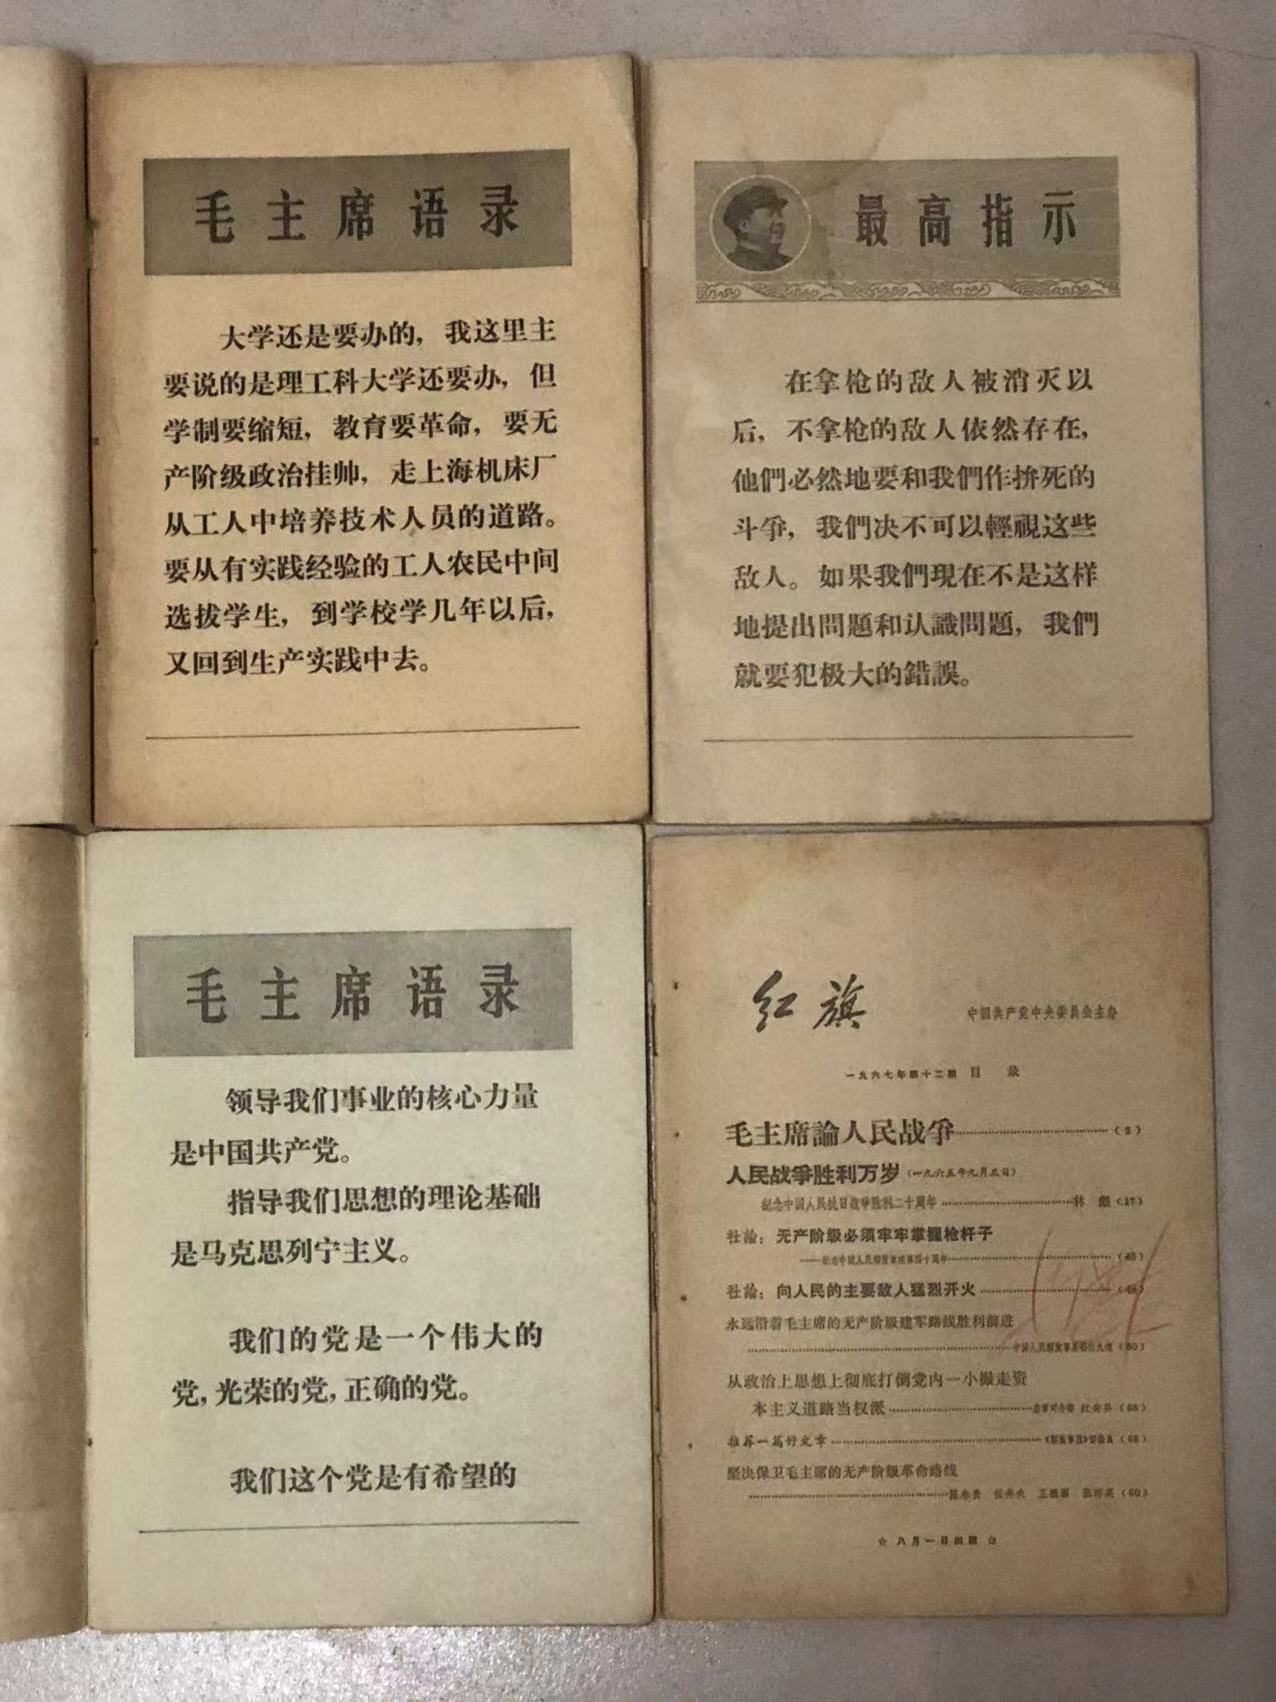 毛主席语录
大学还是要办的，我这里主
要说的是理工科大学还要办，但
学制要缩短，教育要革命，要无
产阶级政治挂帅，走上海机床厂
从工人中培养技术人员的道路。
要从有实践经验的工人农民中间
选拔学生，到学校学几年以后，
又回到生产实践中去。
最高指示
在拿枪的敌人被消灭以
后，不拿枪的敌人依然存在，
他們必然地要和我們作拚死的
斗爭，我們决不可以輕視这些
敌人。如果我們現在不是这样
地提出問題和认識問題，我們
就要犯极大的錯誤。
毛主席语录
领导我们事业的核心力量
是中国共产党。
指导我们思想的理论基础
是马克思列宁主义。
我们的党是一个伟大的
党，光荣的党，正确的党。
我们这个党是有希望的
红旗
中国共产党中央委員会主办
一九六七年第十二期 目 录
毛主席論人民战爭……（2）
人民战爭胜利万岁（一九六五年九月三日）
紀念中国人民抗日战爭胜利二十周年……林 彪（17）
社論：无产阶級必須牢牢掌握枪杆子
——紀念中国人民解放軍建軍四十周年……（43）
社論：向人民的主要敌人猛烈开火……
永远沿着毛主席的无产阶級建军路綫胜利前进
（50）
从政治上思想上彻底打倒党内一小撮走資
本主义道路当权派……
推荐一篇好文章……《解放軍报》評論員
坚决保卫毛主席的无产阶級革命路綫
（60）
☆ 八月一日出版 ☆